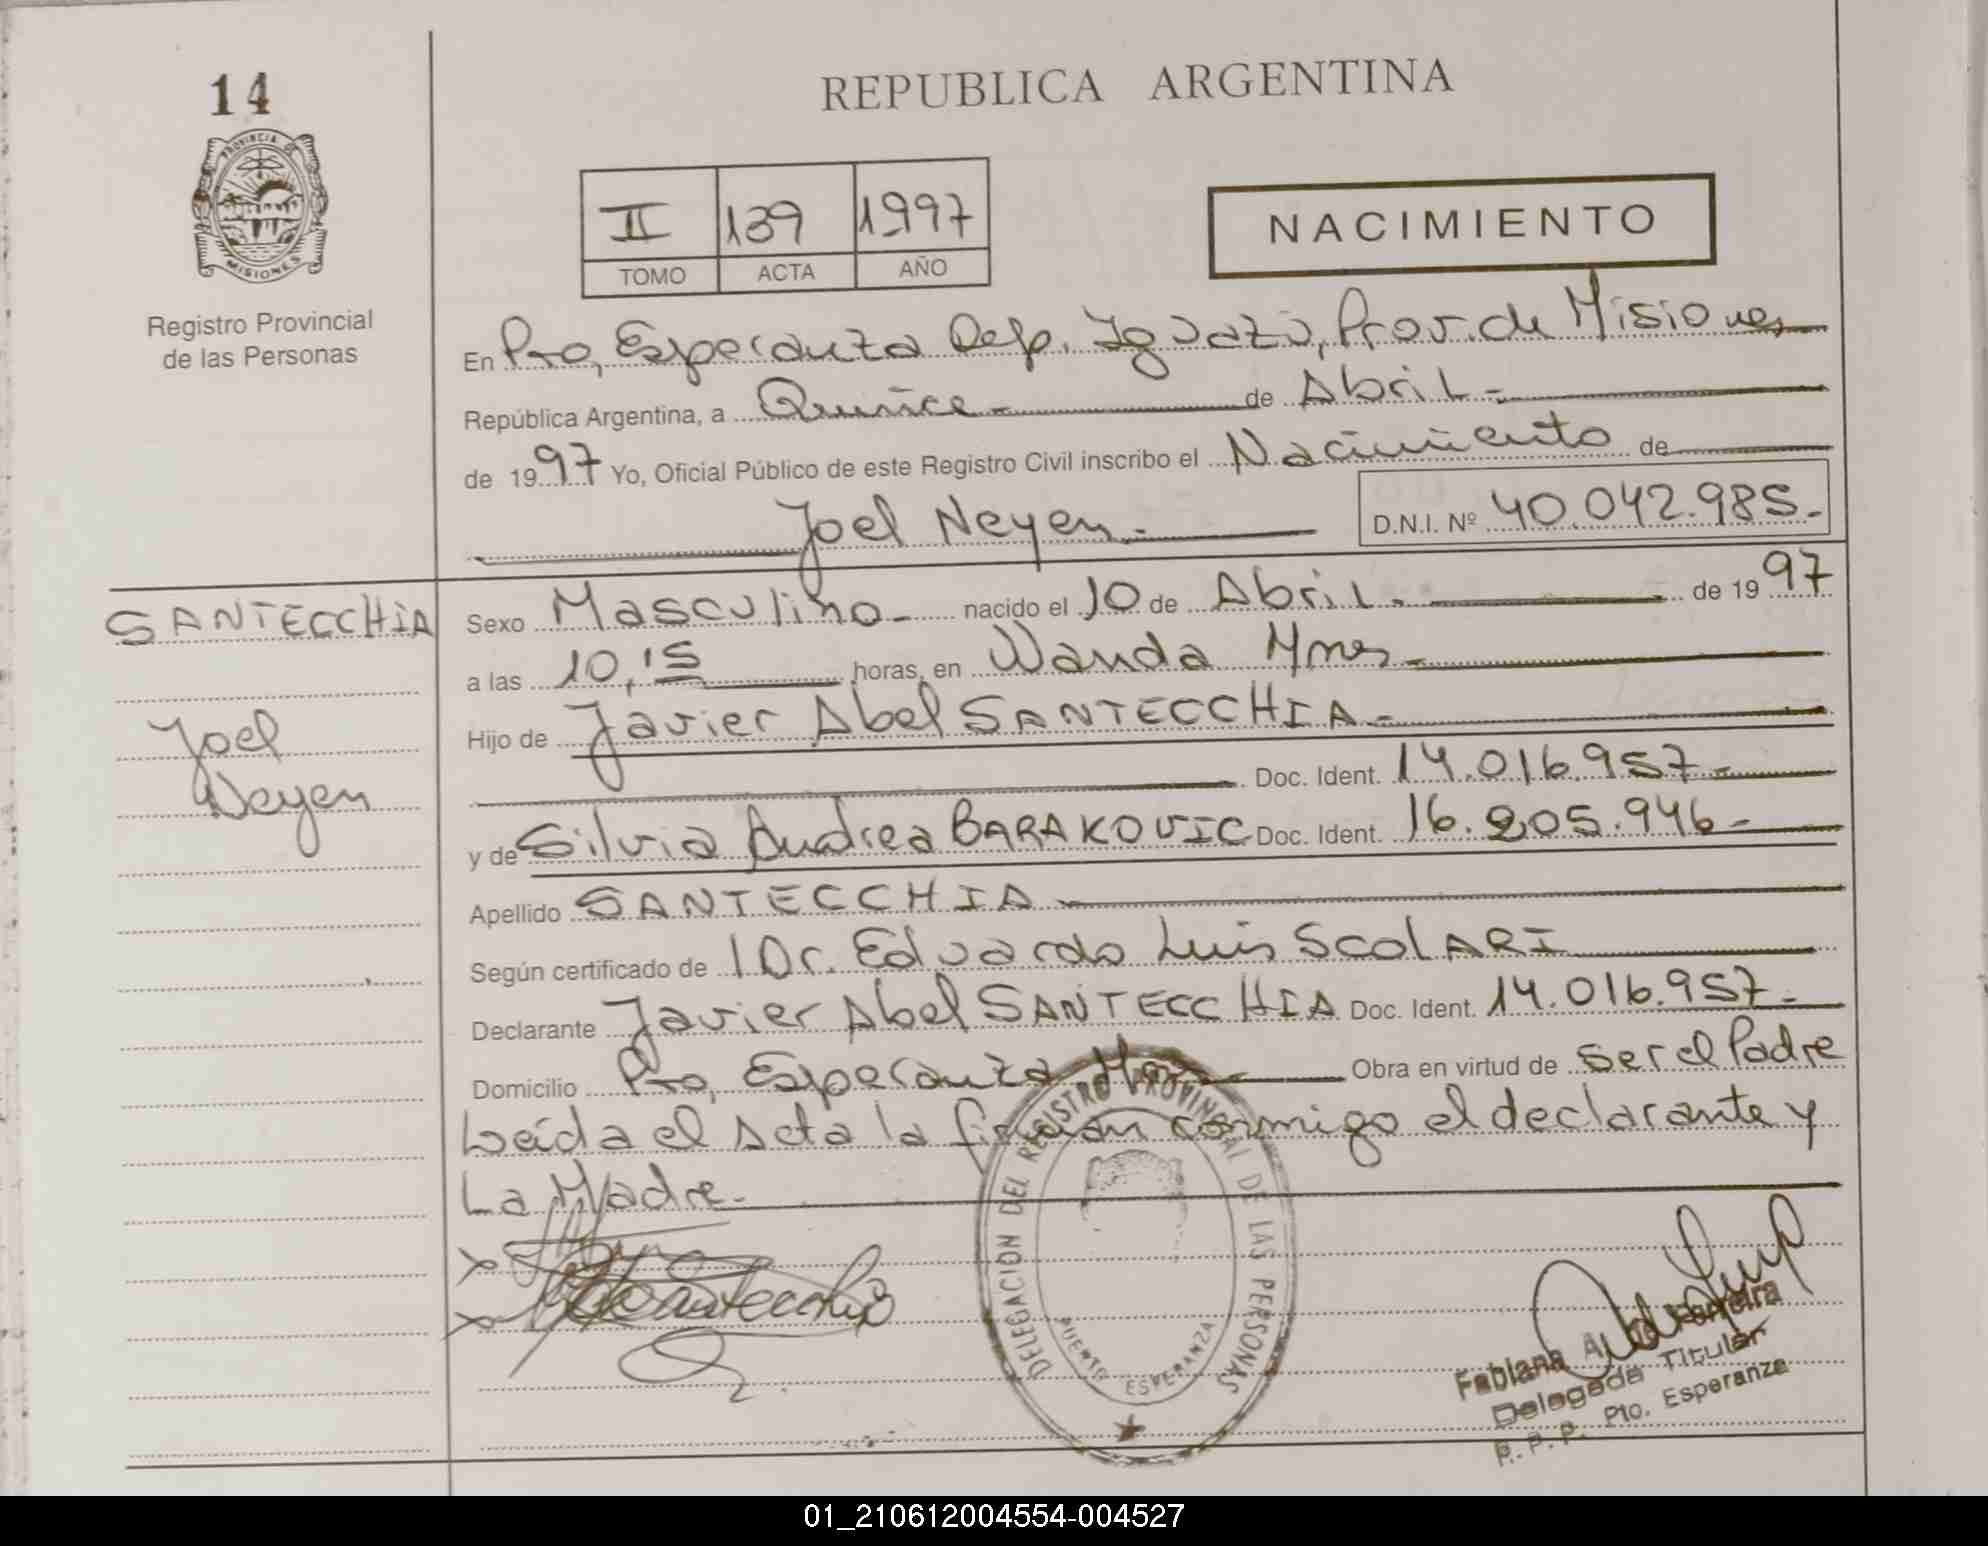 14
PROVINCIA DE
MISIONES
Registro Provincial
de las Personas
REPUBLICA ARGENTINA
II 139 1997
TOMO ACTA AÑO
NACIMIENTO
En Pto, Esperanza Dep. Iguazú, Prov. de Misiones
República Argentina, a Quince de Abril
de 1997 Yo, Oficial Público de este Registro Civil inscribo el Nacimiento de
Joel Neyen D.N.I. Nº 40.042.985.-
SANTECCHIA
Joel
Neyen
Sexo Masculino nacido el 10 de Abril de 1997
a las 10,15 horas, en Wanda Mnes
Hijo de Javier Abel SANTECCHIA
Doc. Ident. 14.016.957
y de Silvia Andrea BARAKOVIC Doc. Ident. 16.205.946
Apellido SANTECCHIA
Según certificado de 1 Dr. Eduardo Luis SCOLARI
Declarante Javier Abel SANTECCHIA Doc. Ident. 14.016.957
Domicilio Pto, Esperanza Obra en virtud de ser el Padre
Leída el Acta la firman conmigo el declarante y
La Madre.
DELEGACION DEL REGISTRO PROVINCIAL DE LAS PERSONAS
PUERTO ESPERANZA
Fabiana A. Ferreira
Delegada Titular
R. P. P. Pto. Esperanza
01_210612004554-004527